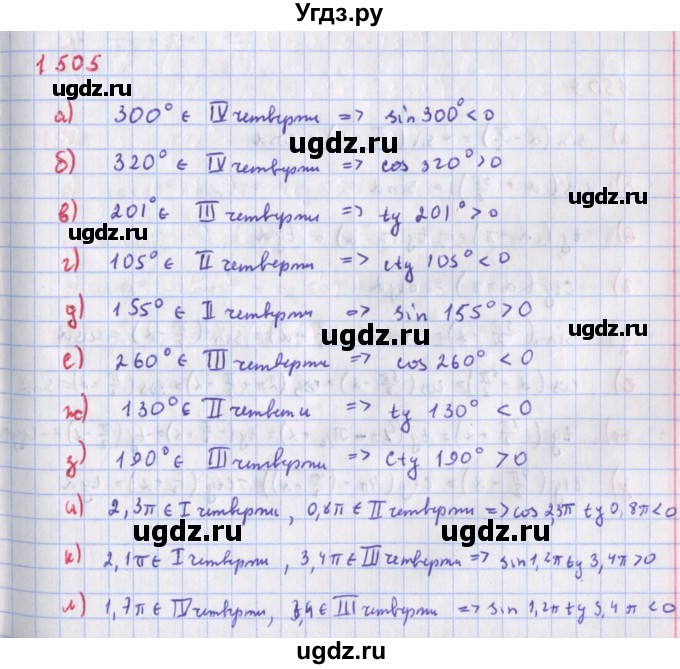 Угдз.ру
1505
а) 300° ∈ IV четверти => sin 300° < 0
udgz.ru
б) 320° ∈ IV четверти => cos 320° > 0
udgz.ru
udgz.ru
в) 201° ∈ III четверти => tg 201° > 0
udgz.ru
г) 105° ∈ II четверти => ctg 105° < 0
udgz.ru
д) 155° ∈ II четверти => sin 155° > 0
udgz.ru
udgz.ru
е) 260° ∈ III четверти => cos 260° < 0
ж) 130° ∈ II четвети => tg 130° < 0
udgz.ru
з) 190° ∈ III четверти => ctg 190° > 0
udgz.ru
и) 2,3π ∈ I четверти, 0,8π ∈ II четверти => cos 2,3π tg 0,8π < 0
udgz.ru
к) 2,1π ∈ I четверти, 3,4π ∈ III четверти => sin 1,2π tg 3,4π > 0
udgz.ru
л) 1,7π ∈ IV четверти, 3,4 ∈ III четверти => sin 1,2π tg 3,4π < 0
udgz.ru